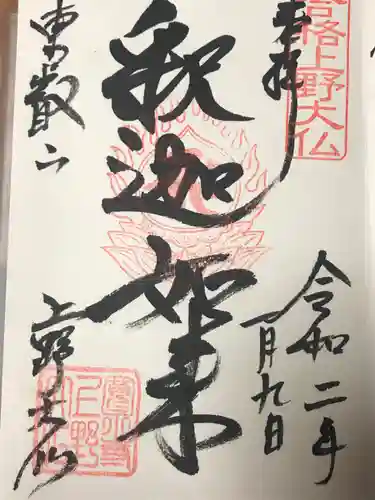 合格上野大仏
奉拝
令和二年
一月九日
釈迦如来
東叡山
上野大仏